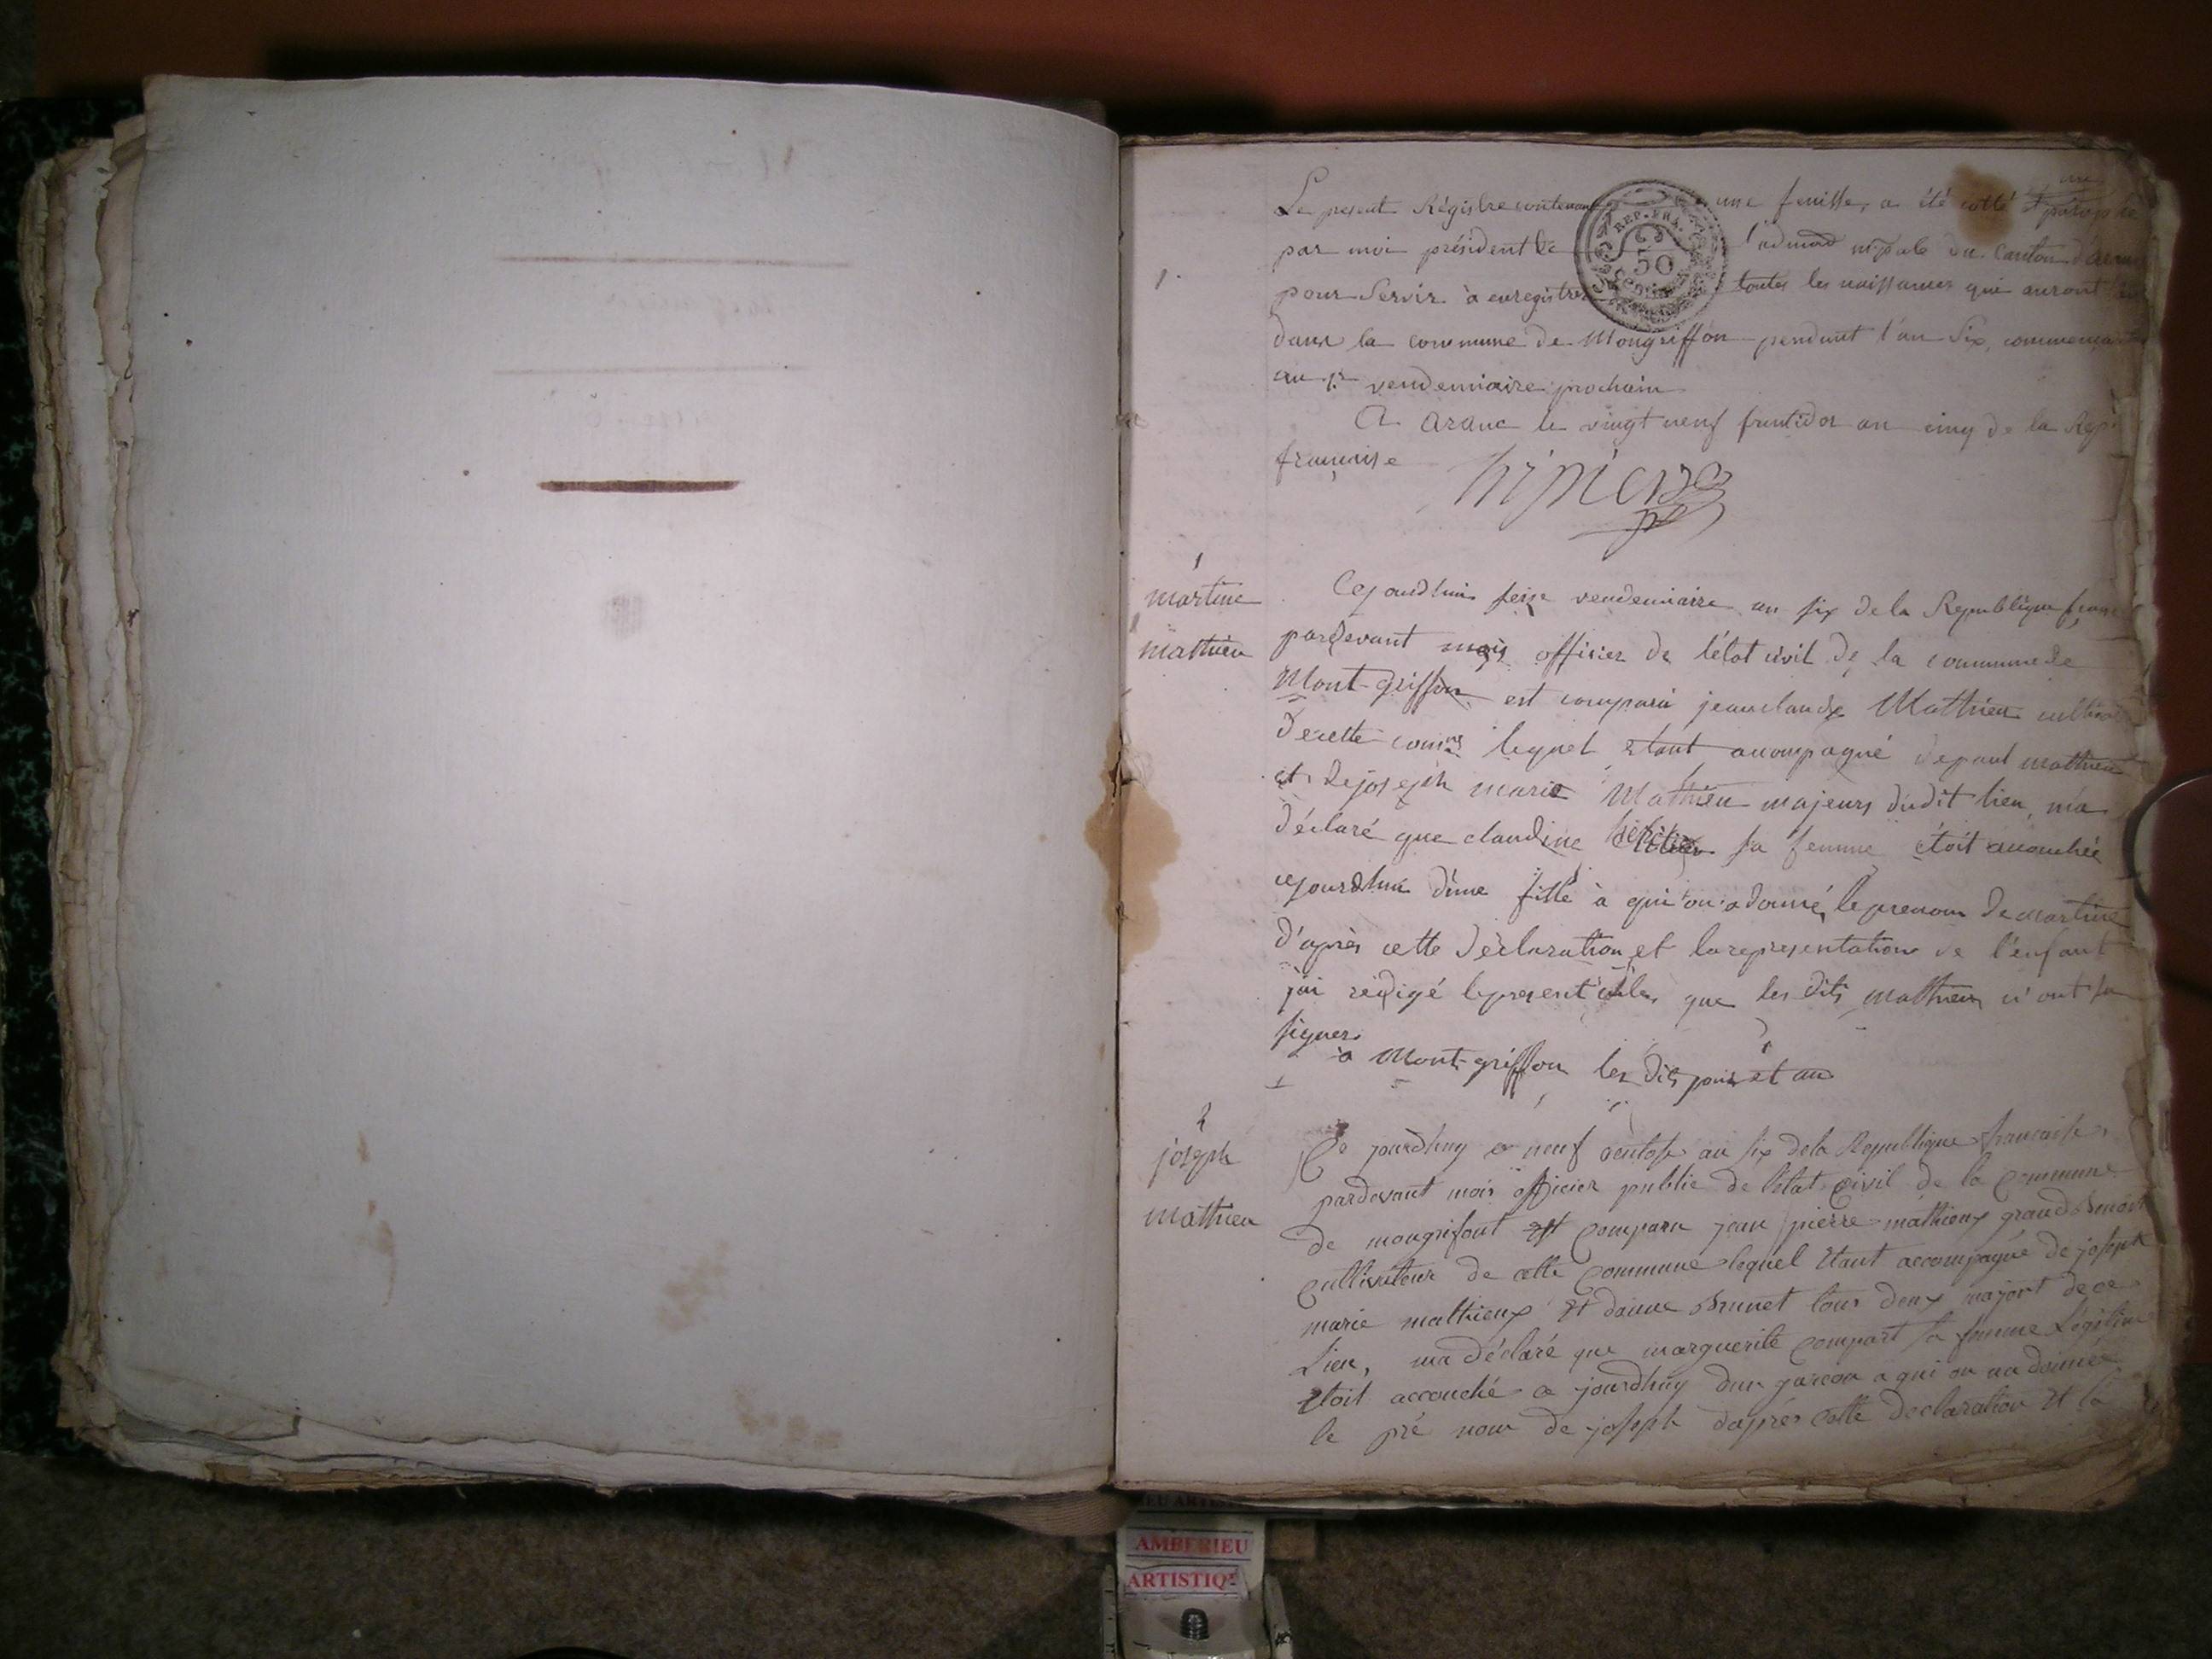 Le present Régistre contenant une feuille, a été cotté et
par moi président de l'admon mpale du Canton d'aranc
pour Servir à enregistrer toutes les naissances qui auront
dans la commune de Mongriffon pendant l'an Six, commençant
au 1er vendemiaire prochain
A aranc le vingt neuf fructidor an cinq de la Rep
française
REP. FRA.
50
1
martine
mathieu
Cejourdhui seize vendemiaire an six de la Republique franc
pardevant moi officier de létat civil de la commune de
Mont-Griffon est comparu jean claude Mathieu
de cette comne lequel étant acompagné de paul mathieu
et de joseph marie Mathieu majeurs dudit lieu, m'a
déclaré que claudine sa femme étoit accouchée
cejourdhui d'une fille à qui on a donné le prenom de martine
d'après cette déclaration et la representation de l'enfant
j'ai redigé le present que les dits mathieu n'ont su
signer
à Mont-griffon les dits jour et an
2
joseph
mathieu
Ce jourdhuy neuf ventose an six de la Republique francaise,
pardevant moi officier public de l'état civil de la Commune
de mongrifont est Comparu jean pierre mathieux
cultivateur de cette Commune lequel Etant accompagné de joseph
marie mathieux Et Brunet tous deux majort de ce
Lieu, ma déclaré que marguerite compart sa femme Légitime
Etoit accouché ce jourdhuy dun garcon a qui on na donnée
le pré nom de joseph daprés cette declaration Et la
AMBERIEU
ARTISTIQ